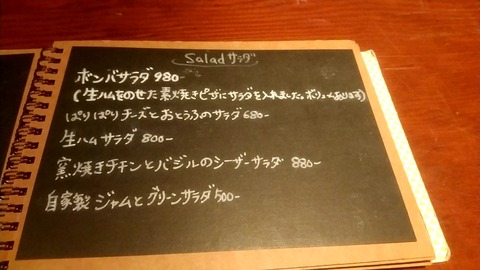 Salad サラダ
ボンバサラダ 980-
(生ハムをのせた窯焼きピザにサラダを入れました。ボリュームあります)
ぱりぱりチーズとおとうふのサラダ 680-
生ハムサラダ 800-
窯焼きチキンとバジルのシーザーサラダ 880-
自家製ジャムとグリーンサラダ 500-